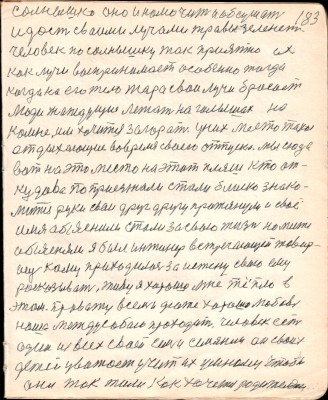 183
солнышко оно и помочит и обсушит
и даст своими лучами травы зеленет
человек по солнышку так приятно их
как лучи воспринимает особенно тогда
когда на его тело жара свои лучи бросает
Люди жаждущие лежат на гольешах на
хотится загорат. у них место такое
отдыхающие вовремя своего отпуска мы сюда
вот на это место на этот пляш кто от
кудова поприезжали стали ближе знако
мится руки свои друг другу протянули и своё
имя обяснили стали за свою жизн
обясняли я был встречающей товар
ищу кому приходилося за истену свою ему
рассказыват. Живу я хорошо мне тепло в
этом. природу всем даже хорошо
наша между собою проходит, человек ест
один из всех своей семи он своих
детей уважает учит их умному чтобы
они так жили как хочется родителям